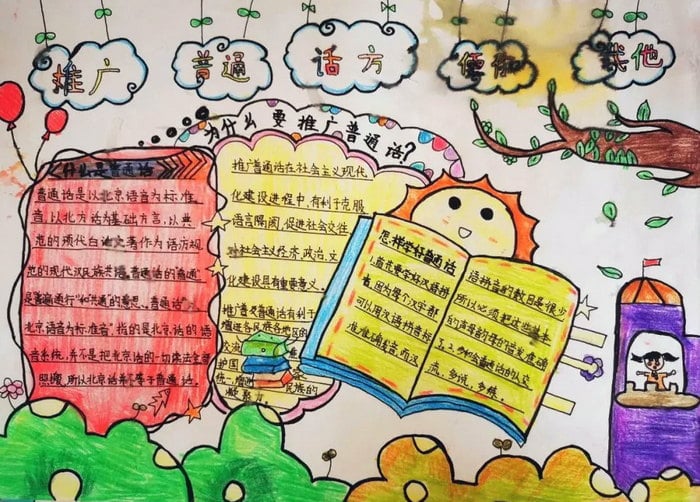 推广
普通
话方
便你
我他
为什么要推广普通话?
什么是普通话
普通话是以北京语音为标准
音,以北方话为基础方言,以典
范的现代白话文著作为语法规
范的现代汉民族共同语。普通话的"普通"
是"普遍通行"和"共通"的意思。普通话"以
北京语音为标准音"指的是北京话的语
音系统,并不是把北京话的一切读法全部
照搬,所以北京话并不等于普通话。
推广普通话在社会主义现代
化建设进程中,有利于克服
语言隔阂,促进社会交往
对社会主义经济、政治、文
化建设具有重要意义。
推广普及普通话有利于
增进各民族各地区的
交流
护国
统一,增
民族的
凝聚力。
怎样学好普通话
1、首先要学好汉语拼
音,因为每个汉字都
可以用汉语拼音标
准准确发音。而汉
语拼音的数目是很少
所以必须把这些基本
的声母韵母的音发准确
3、2、多和会普通话的人交
流,多说,多练。